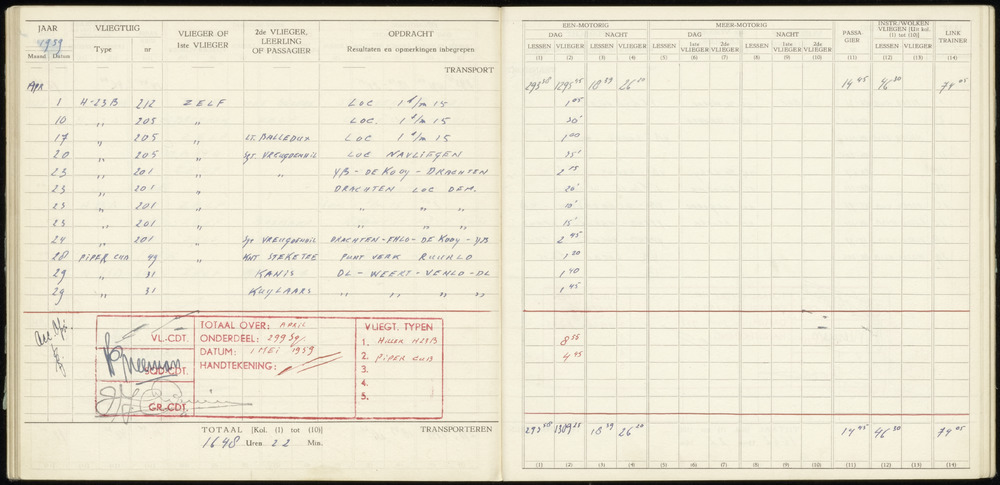 JAAR VLIEGTUIG VLIEGER OF 1ste VLIEGER 2de VLIEGER, LEERLING OF PASSAGIER OPDRACHT
1959 Type nr Resultaten en opmerkingen inbegrepen
Maand Datum
TRANSPORT
APR
1 H-23B 212 ZELF LOC 1 t/m 15
10 " 205 " LOC. 1 t/m 15
17 " 205 " LT. BALLEDUX LOC 1 t/m 15
20 " 205 " Sgt VREUGDENHIL LOC NAVLIEGEN
23 " 201 " YB - DE KOOY - DRACHTEN
23 " 201 " DRACHTEN LOC DEM.
23 " 201 " " "
23 " 201 " " "
24 " 201 " Sgt VREUGDENHIL DRACHTEN - EHLO - DE KOOY - YB
28 PIPER CUB 49 KNT STEKETEE PUNT VERK RUURLO
29 " 31 KANIS DL - WEERT - VENLO - DL
29 " 31 KUYLAARS " " " "
VL.-CDT.
SQD.CDT.
GR.-CDT.
TOTAAL OVER: APRIL
ONDERDEEL: 299 Sq.
DATUM: 1 MEI 1959
HANDTEKENING:
VLIEGT. TYPEN
1. HILLER H23B
2. PIPER CUB
3.
4.
5.
TOTAAL [Kol. (1) tot (10)] TRANSPORTEREN
1648 Uren 22 Min.
EEN-MOTORIG MEER-MOTORIG PASSAGIER INSTR./WOLKEN VLIEGEN [Uit kol. (1) tot (10)] LINK TRAINER
DAG NACHT DAG NACHT
LESSEN VLIEGER LESSEN VLIEGER LESSEN 1ste VLIEGER 2de VLIEGER LESSEN 1ste VLIEGER 2de VLIEGER LESSEN VLIEGER
(1) (2) (3) (4) (5) (6) (7) (8) (9) (10) (11) (12) (13) (14)
293 58 1295 45 18 39 26 20 14 45 46 30 74 05
1 05
20'
1 00
35'
2 15
20'
10'
15'
2 45
1 20
1 40
1 45
8 55
4 45
293 58 1309 25 18 39 26 20 14 45 46 30 74 05
(1) (2) (3) (4) (5) (6) (7) (8) (9) (10) (11) (12) (13) (14)